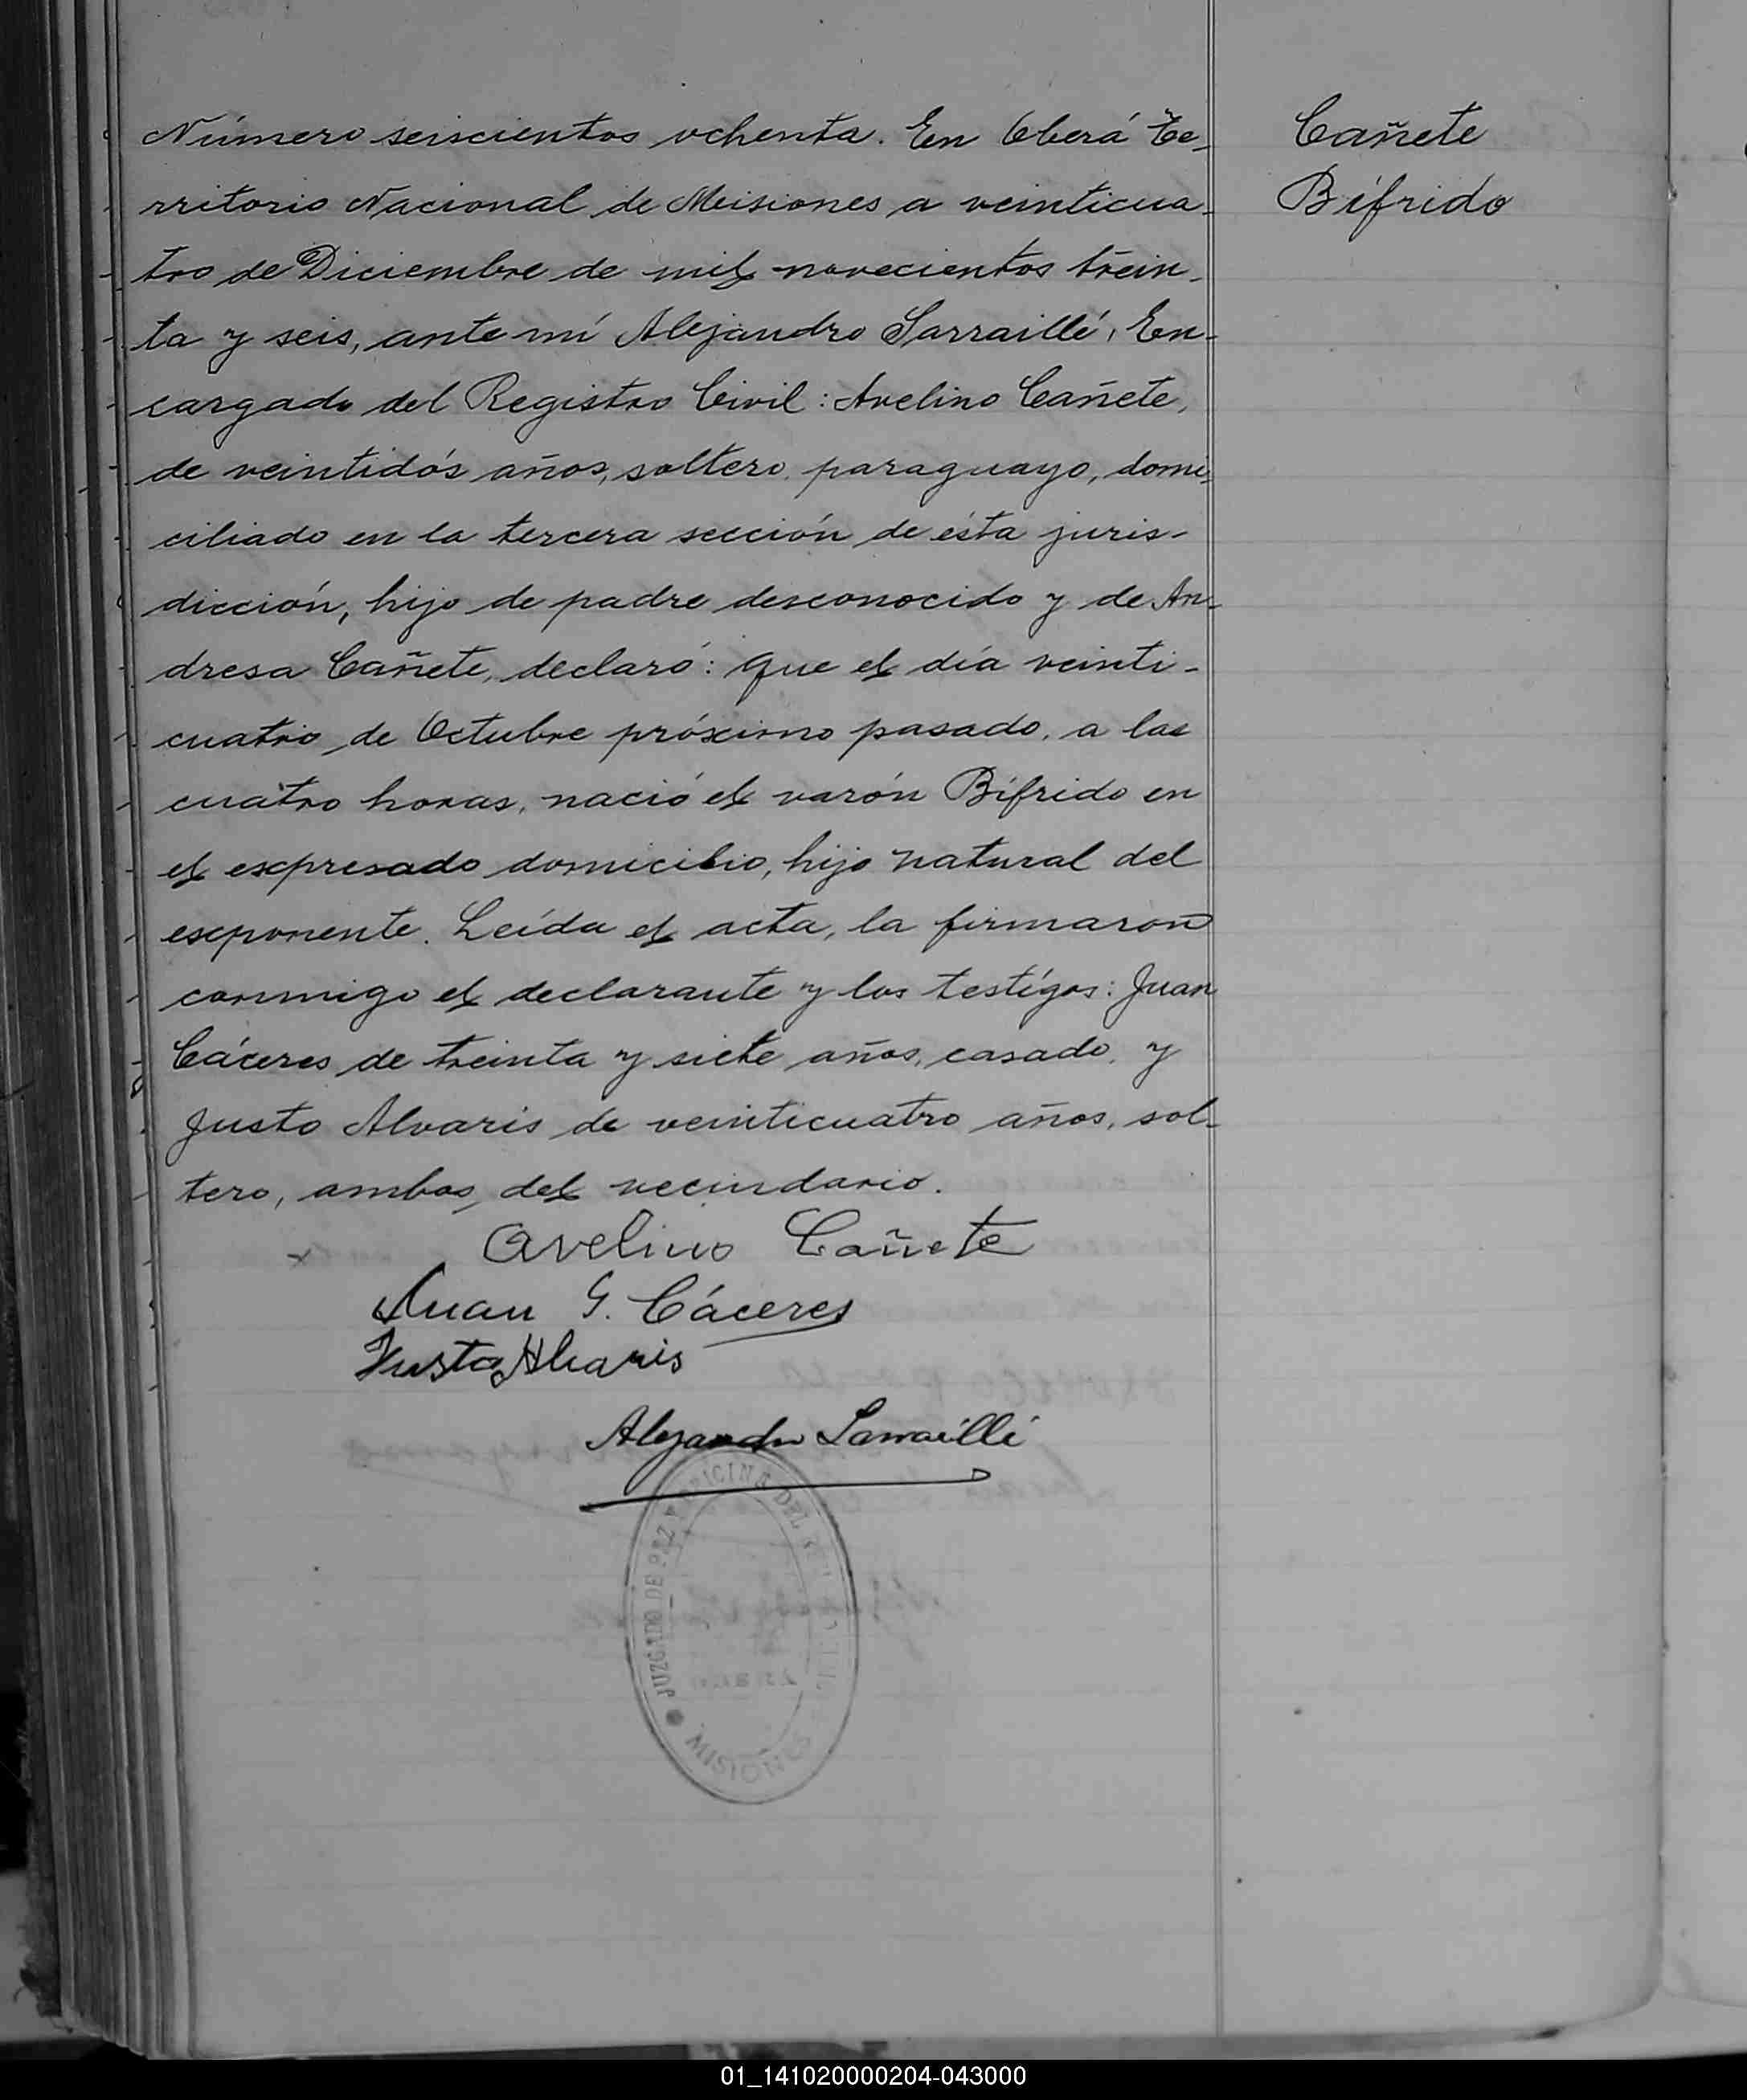 Número seiscientos ochenta. En Oberá Te-
rritorio Nacional de Misiones a veinticua-
tro de Diciembre de mil novecientos trein-
ta y seis, ante mí Alejandro Sarraillé, En-
cargado del Registro Civil: Avelino Cañete,
de veintidós años, soltero, paraguayo, domi-
ciliado en la tercera sección de ésta juris-
dicción, hijo de padre desconocido y de An-
dresa Cañete, declaró: que el día veinti-
cuatro de Octubre próximo pasado, a las
cuatro horas, nació el varón Bífrido en
el expresado domicilio, hijo natural del
exponente. Leída el acta, la firmaron
conmigo el declarante y los testigos: Juan
Cáceres de treinta y siete años, casado, y
Justo Alvaris de veinticuatro años, sol-
tero, ambos del vecindario.
Cañete
Bífrido
x Avelino Cañete
Juan G. Cáceres
Justo Alvaris
Alejandro Sarraillé
JUZGADO DE PAZ Y OFICINA DEL
MISIONES
01_141020000204-043000